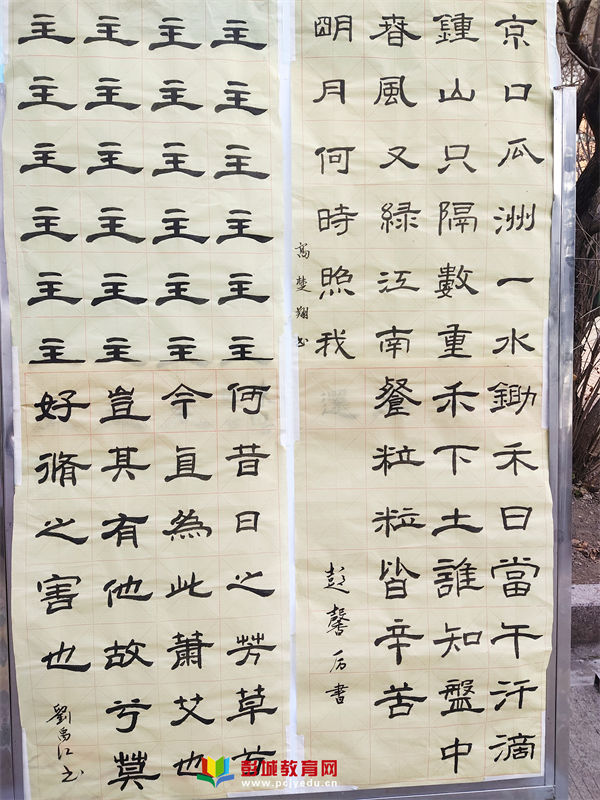 京口瓜洲一水
鍾山只隔數重
春風又緑江南
明月何時照我
高楚翔书
鋤禾日當午汗滴
禾下土誰知盤中
餐粒粒皆辛苦
彭馨后書
主主主主主主
主主主主主主
主主主主主主
主主主主主主
何昔日之芳草兮
今直為此蕭艾也
豈其有他故兮莫
好脩之害也
劉禹江书
彭城教育网
www.pcjyedu.cn